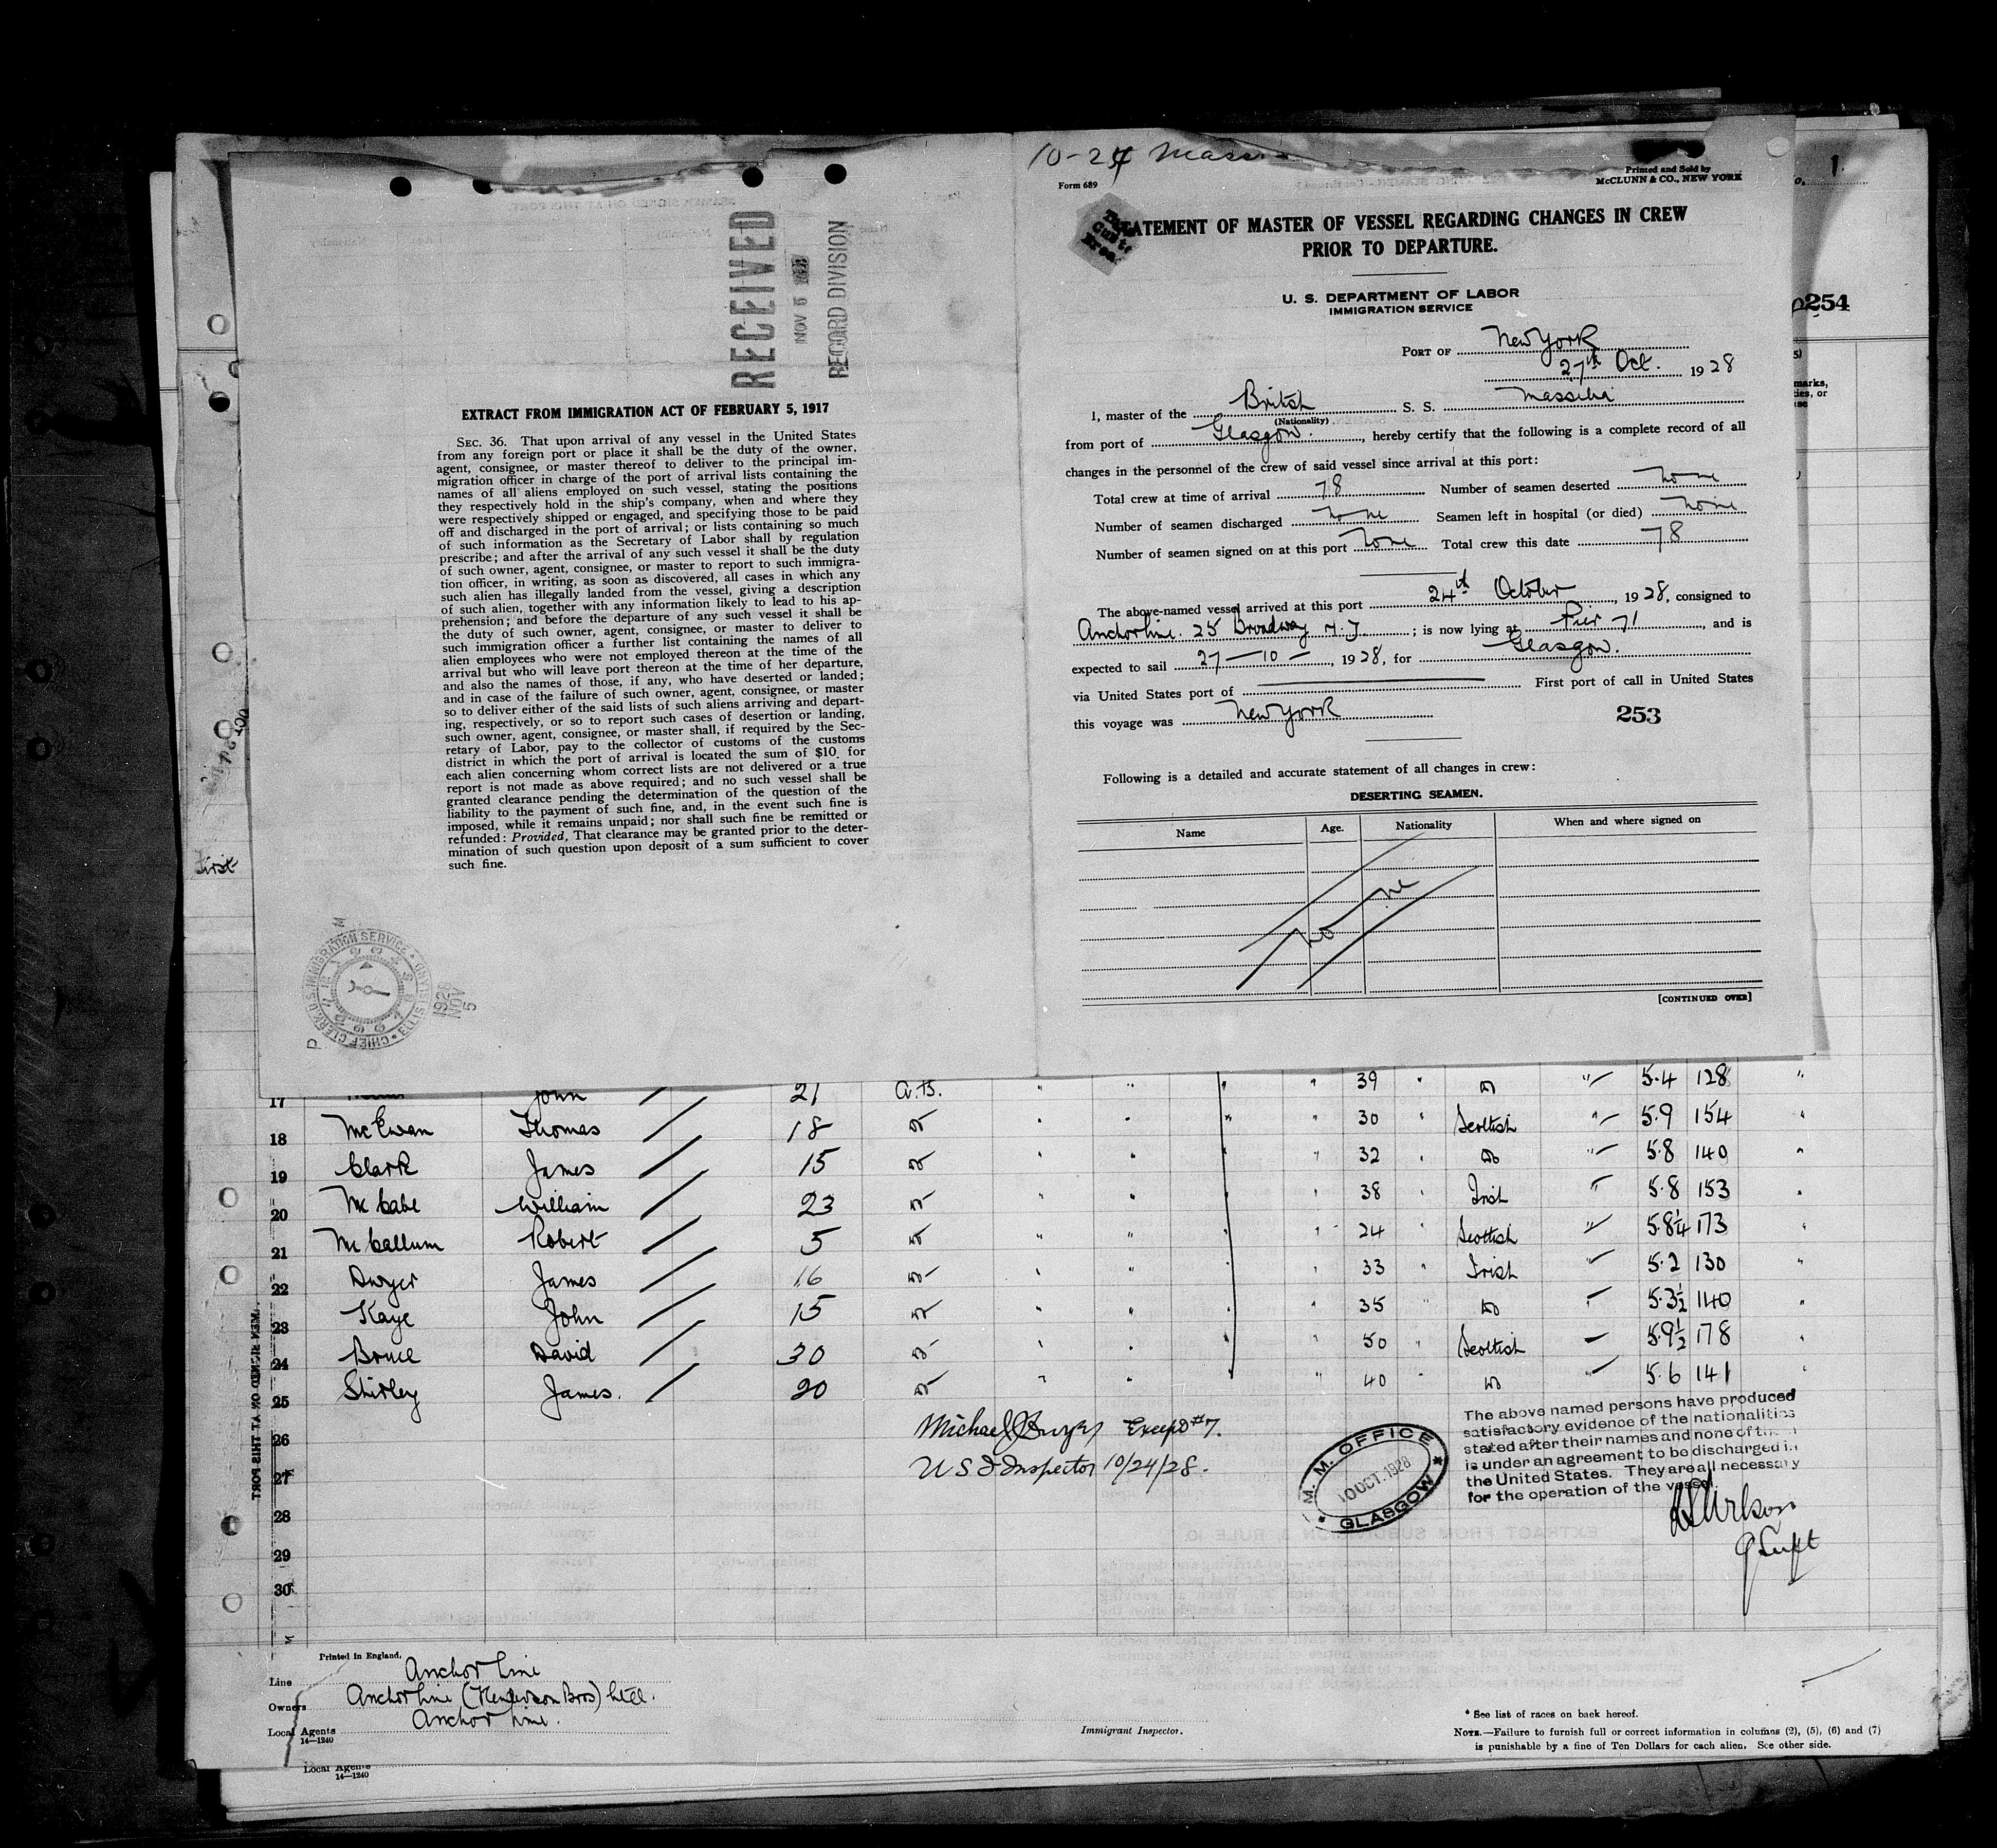 10-24 Mass
Form 689
Printed and Sold by
McCLUNN & CO., NEW YORK
1
254
RECEIVED
NOV 5
RECORD DIVISION
EXTRACT FROM IMMIGRATION ACT OF FEBRUARY 5, 1917
SEC. 36. That upon arrival of any vessel in the United States
from any foreign port or place it shall be the duty of the owner,
agent, consignee, or master thereof to deliver to the principal im-
migration officer in charge of the port of arrival lists containing the
names of all aliens employed on such vessel, stating the positions
they respectively hold in the ship's company, when and where they
were respectively shipped or engaged, and specifying those to be paid
off and discharged in the port of arrival; or lists containing so much
of such information as the Secretary of Labor shall by regulation
prescribe; and after the arrival of any such vessel it shall be the duty
of such owner, agent, consignee, or master to report to such immigra-
tion officer, in writing, as soon as discovered, all cases in which any
such alien has illegally landed from the vessel, giving a description
of such alien, together with any information likely to lead to his ap-
prehension; and before the departure of any such vessel it shall be
the duty of such owner, agent, consignee, or master to deliver to
such immigration officer a further list containing the names of all
alien employees who were not employed thereon at the time of the
arrival but who will leave port thereon at the time of her departure,
and also the names of those, if any, who have deserted or landed;
and in case of the failure of such owner, agent, consignee, or master
so to deliver either of the said lists of such aliens arriving and depart-
ing, respectively, or so to report such cases of desertion or landing,
such owner, agent, consignee, or master shall, if required by the Sec-
retary of Labor, pay to the collector of customs of the customs
district in which the port of arrival is located the sum of $10 for
each alien concerning whom correct lists are not delivered or a true
report is not made as above required; and no such vessel shall be
granted clearance pending the determination of the question of the
liability to the payment of such fine, and, in the event such fine is
imposed, while it remains unpaid; nor shall such fine be remitted or
refunded: Provided, That clearance may be granted prior to the deter-
mination of such question upon deposit of a sum sufficient to cover
such fine.
CHIEF CLERK, U.S. IMMIGRATION SERVICE ELLIS ISLAND
NOV 5
STATEMENT OF MASTER OF VESSEL REGARDING CHANGES IN CREW
PRIOR TO DEPARTURE.
U. S. DEPARTMENT OF LABOR
IMMIGRATION SERVICE
PORT OF New York
27th Oct. 1928
I, master of the British S. S. Massilia
(Nationality)
from port of Glasgow., hereby certify that the following is a complete record of all
changes in the personnel of the crew of said vessel since arrival at this port:
Total crew at time of arrival 78 Number of seamen deserted none
Number of seamen discharged none Seamen left in hospital (or died) none
Number of seamen signed on at this port none Total crew this date 78
The above-named vessel arrived at this port 24th October, 1928, consigned to
Anchor Line. 25 Broadway N.Y.; is now lying at Pier 71, and is
expected to sail 27-10-, 1928, for Glasgow.
via United States port of First port of call in United States
this voyage was New York
253
Following is a detailed and accurate statement of all changes in crew:
DESERTING SEAMEN.
Name Age. Nationality When and where signed on
none
[CONTINUED OVER]
first
17 John 21 A.B. " " " " 39 " do " 5.4 128 "
18 McEwan Thomas 18 do " " " " 30 " Scottish " 5.9 154 "
19 Clark James 15 do " " " " 32 " do " 5.8 140 "
20 McCabe William 23 do " " " " 38 " Irish " 5.8 153 "
21 McCallum Robert 5 do " " " " 24 " Scottish " 5.8¼ 173 "
22 Dwyer James 16 do " " " " 33 " Irish " 5.2 130 "
23 Kaye John 15 do " " " " 35 " do " 5.3½ 140 "
24 Bruce David 30 do " " " " 50 " Scottish 5.9½ 178 "
25 Shirley James. 20 do " " " " 40 " do " 5.6 141 "
26
27
28
29
30
Michael J Dwyer Except #7.
U S I Inspector 10/24/28.
M. M. OFFICE
10 OCT 1928
GLASGOW
The above named persons have produced
satisfactory evidence of the nationalities
stated after their names and none of them
is under an agreement to be discharged in
the United States. They are all necessary
for the operation of the vessel.
MEN SIGNED ON AT THIS PORT.
Printed in England.
Line Anchor Line
Owners Anchor Line (Henderson Bros) Ltd.
Local Agents Anchor Line.
14—1240
Immigrant Inspector.
* See list of races on back hereof.
NOTE.—Failure to furnish full or correct information in columns (2), (5), (6) and (7)
is punishable by a fine of Ten Dollars for each alien. See other side.
Local Agents
14—1240